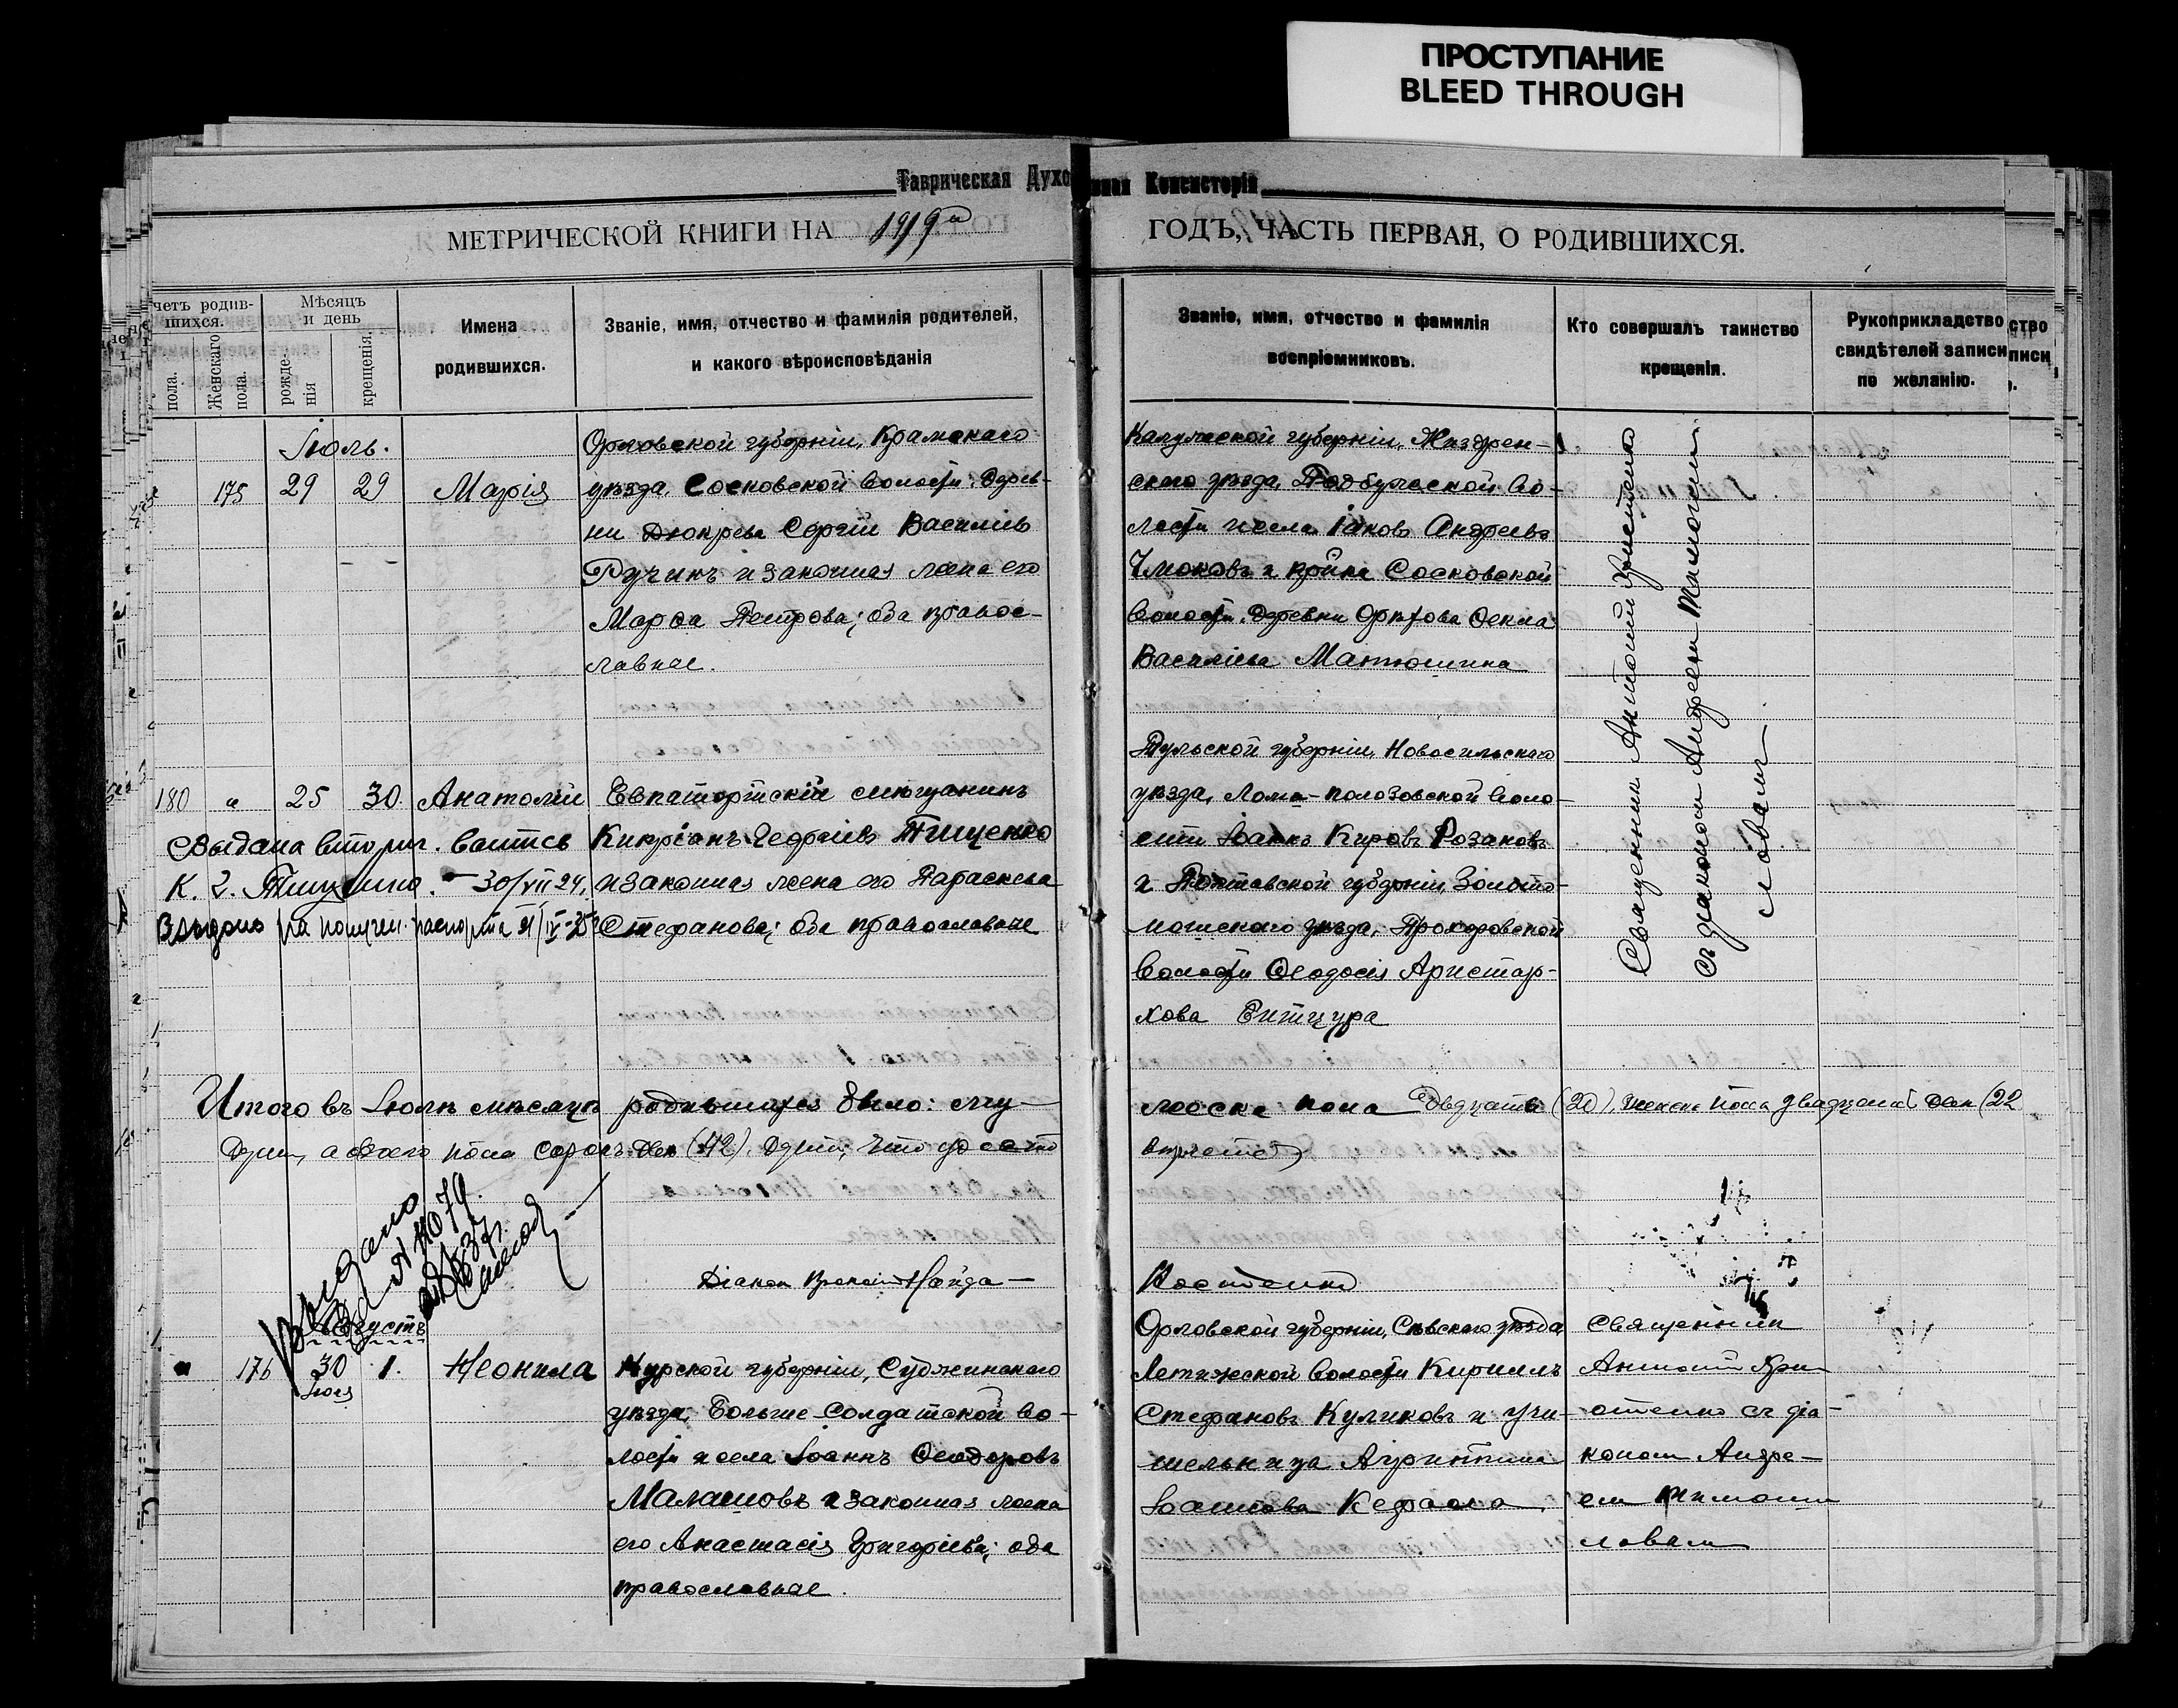 ПРОСТУПАНИЕ
BLEED THROUGH
Таврическая Духо
вная Консисторія
МЕТРИЧЕСКОЙ КНИГИ НА 1919й
ГОДЪ, ЧАСТЬ ПЕРВАЯ, О РОДИВШИХСЯ.
четъ родив-
шихся.
пола.
Женскаго
пола.
Мѣсяцъ
и день
рожде-
нія
крещенія
Имена
родившихся.
Званіе, имя, отчество и фамилія родителей,
и какого вѣроисповѣданія
Званіе, имя, отчество и фамилія
воспріемниковъ.
Кто совершалъ таинство
крещенія.
Рукоприкладство
свидѣтелей записи
по желанію.
Іюль.
175 29 29 Марія
Орловской губерніи,
уѣзда, Сосковской волости, дерев-
ни Сергій Василіев
Ручинъ и законная жена его
Марѳа Петрова; оба правос-
лавные.
Калужской губерніи, Жиздрен-
скаго уѣзда, Подбужской во-
лости и села Іаковъ Андреевъ
Чмоковъ и Сосковской
волости, деревни Ѳекла
Василіева Матюшина
Священникъ Антоній Христенко
съ діакономъ Андреемъ
ловымъ
180 " 25 30 Анатолій
Евпаторійскій мѣщанинъ
Кипріанъ Георгіевъ Тищенко
и законная жена его Параскева
Стефанова; оба православные
Выдана втор.
К. Г. Тищенко. — 30/VII 24.
Выдано на получен. паспорта
Тульской губерніи, Новосильскаго
уѣзда, Ломи-полозовской воло-
сти Іоаннъ Кировъ Розановъ
и Полтавской губерніи, Золото-
ношскаго уѣзда, Прохоровской
волости Ѳеодосія Аристар-
хова
Итого въ Іюлѣ мѣсяцѣ родившихся было: му-
жеска пола двадцать (20), женска пола двадцать две (22
душ, а обоего пола сорокъ две (42) душ, что удосто
вѣряетъ)
Выдано
Діакон Найда —
Августъ
" 176 30 1. Неонила
Іюля
Курской губерніи, Суджинскаго
уѣзда, Больше-Солдатской во-
лости и села Іоаннъ Ѳеодоровъ
Малашовъ и законная жена
его Анастасія Григоріева; оба
православные.
Орловской губерніи, Сѣвскаго уѣзда
Лемяжской волости Кириллъ
Стефановъ Куликовъ и учи-
тельница
Іоаннова
Священникъ
Антоній Хри-
стенко съ діа-
кономъ Андре-
емъ
ловымъ